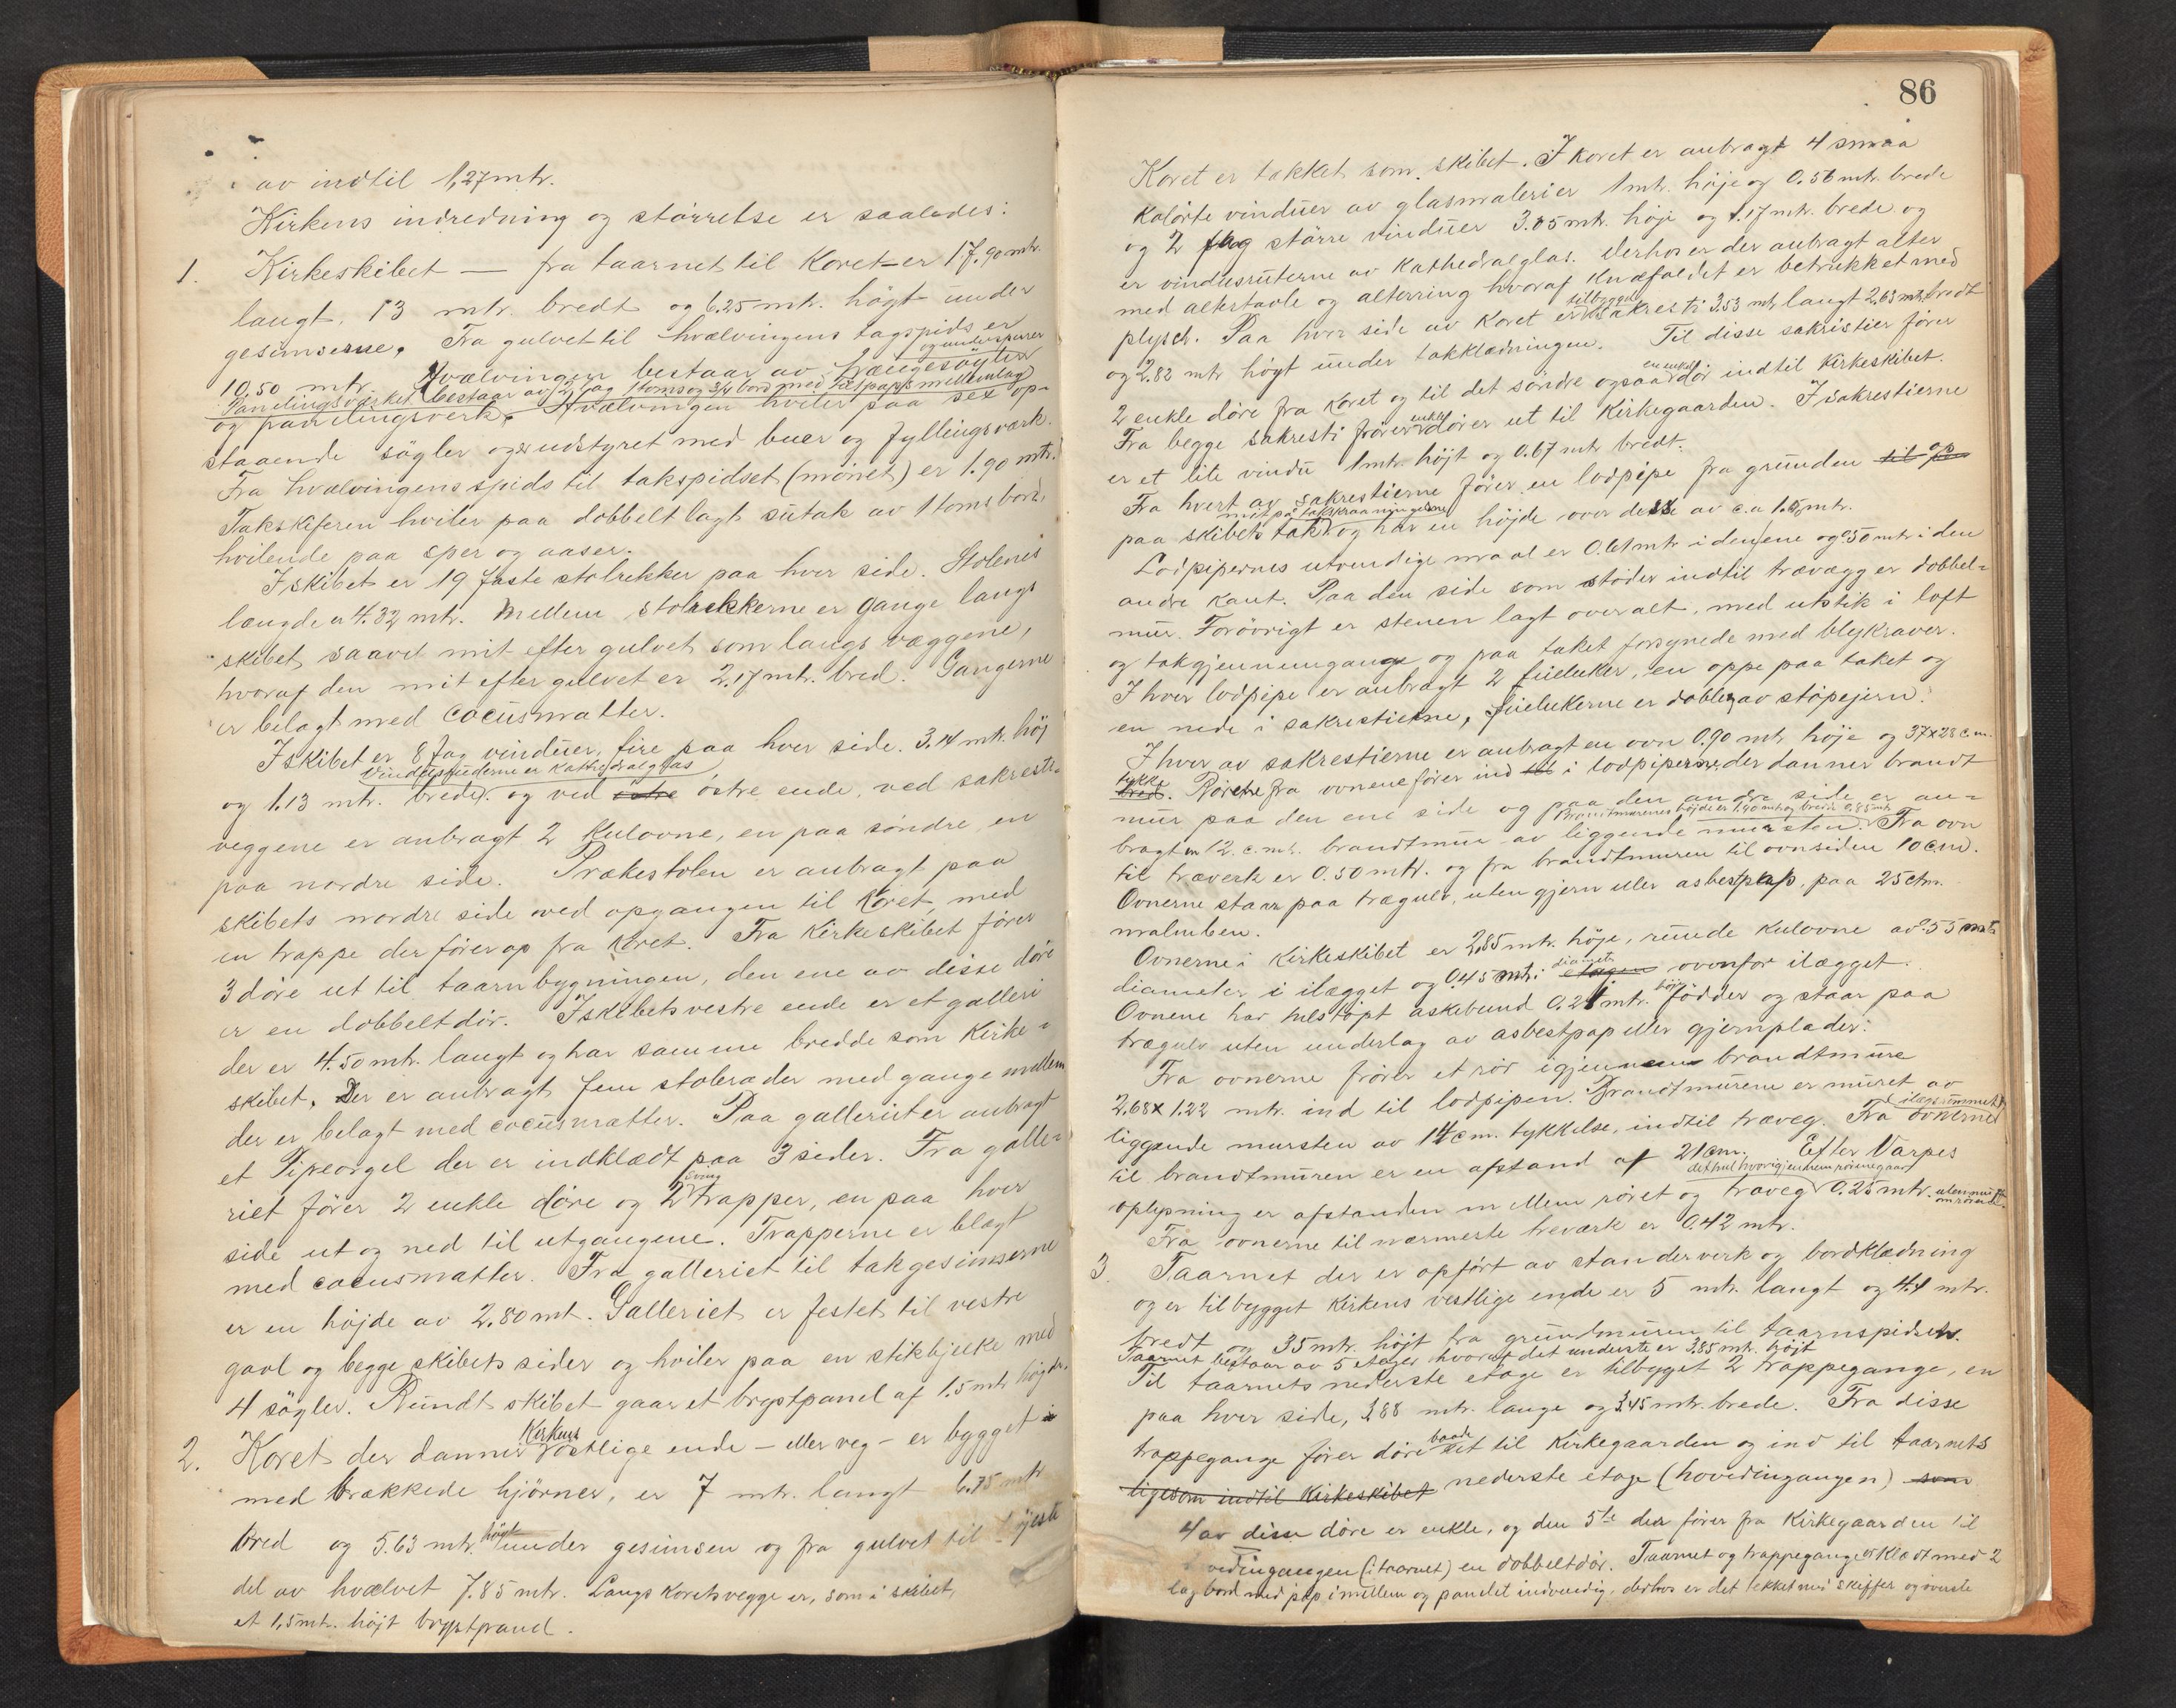 av indtil 1,27 mtr.
Kirkens indredning og störrelse er saaledes:
1. Kirkeskibet — fra taarnet til Koret - er 17.90 mtr.
langt, 13 mtr. bredt og 6.25 mtr. högt under
gesimserne. Fra gulvet til hvælvingens tagspids er
og underspærrer
10,50 mtr. Hvælvingen bestaar av hængesögler
Panelingsværket bestaar av 2 lag 1 toms og 3/4 bord med filtpap i mellemlag
og panelingsverk. Hvælvingen hviler paa sex op-
staaende søgler og er udstyret med buer og fyllingsværk.
Fra hvælvingens spids til takspidset (mönet) er 1.90 mtr.
Takskiferen hviler paa dobbelt lagt sutak av 1 toms bord,
hvilende paa sper og aaser.
I skibet er 19 faste stolrekker paa hver side. Stolenes
længde er 4.32 mtr. Mellem stolrekkerne er gange langs
skibet saavel mit efter gulvet som langs væggene,
hvoraf den mit efter gulvet er 2.17 mtr. bred. Gangerne
er belagt med cocusmatter.
I skibet er 8 fag vinduer, fire paa hver side. 3.14 mtr. höj
Vindusruderne er Kathedralglas
og 1.13 mtr. brede. og ved östre östre ende, ved sakresti-
veggene er anbragt 2 Kulovne, en paa söndre en
paa nordre side. Prækestolen er anbragt paa
skibets nordre side ved opgangen til Koret, med
en trappe der förer op fra Koret. Fra Kirkeskibet förer
3 döre ut til taarnbygningen, den ene av disse döre
er en dobbeltdör. I skibets vestre ende er et galleri
der er 4.50 mtr. langt og har samme bredde som Kirke-
skibet. Der er anbragt fem stolerader med gange mellem
der er belagt med cocusmatter. Paa galleriet er anbragt
et Pipeorgel der er indklædt paa 3 sider. Fra galle-
sving
riet förer 2 enkle döre og 2 trapper, en paa hver
side ut og ned til utgangene. Trapperne er blagt
med cocusmatter. Fra galleriet til takgesimserne
er en höjde av 2.80 mt. Galleriet er festet til vestre
gavl og begge skibets sider og hviler paa en stikbjelke med
4 sögler. Rundt skibet gaar et brystpanel af 1.5 mtr höjde.
Kirkens
2. Koret der danner östlige ende - eller veg - er bygget i
med brækkede hjörner, er 7 mtr. langt 6.75 mtr
högt
bred og 5.63 mtr. under gesimsen og fra gulvet til
del av hvælvet 7.85 mtr. Langs Korets vegge er, som i skibet,
et 1,5 mtr. höjt brystpanel.
86
Koret er tækket som skibet. I koret er anbragt 4 smaa
kolörte vinduer av glasmalerier 1 mtr. höje og 0.56 mtr. brede
og 2 fag större vinduer 3.05 mtr. höje og 1.17 mtr. brede og
er vindusruterne av Kathedralglas. Derhos er der anbragt alter
med altertavle og alterring hvoraf Knæfaldet er betrukket med
tilbygget
plysch. Paa hver side av Koret er sakresti 3.53 mtr langt 2.63 mtr. bredt
og 2.82 mtr högt under takklædningen. Til disse sakristier förer
en enkel
2 enkle döre fra Koret og til det söndre ogsaa dör indtil Kirkeskibet.
enkle
Fra begge sakresti förer döre ut til Kirkegaarden. I sakrestierne
er et lite vindu 1 mtr. höjt og 0.67 mtr bredt.
Fra hvert av sakrestierne förer en lodpipe fra grunden til op
mit paa takskraaningerne
paa skibets tak og har en höjde over dette av c.a 1.5 mtr.
Lodpipernes utvendige maal er 0.61 mtr i den ene og 0.50 mtr i den
andre kant. Paa den side som stöder indtil trævæg er dobbel-
mur. Forövrigt er stenen lagt overalt, med utstik i loft
og takgjennemgange og paa taket forsynede med blykraver.
I hver lodpipe er anbragt 2 feieluker, en oppe paa taket og
en nede i sakrestierne, feielukerne er doble av stöpejern.
I hver av sakrestierne er anbragt en ovn 0.90 mtr höje og 37x28 c.m.
tykke
bred. Rörene fra ovnene förer ind til i lodpiperne, der danner brandt
mur paa den ene side og paa den andre side er an-
Brandtmurenes höjde er 1.90 mtr og brede 0.85 mtr
bragt en 12. c. mtr. brandtmur av liggende mursten. Fra ovn
til træverk er 0.50 mtr. og fra brandtmuren til ovnsiden 10 cm.
Ovnerne staar paa trægulv, uten gjern eller asbestpap, paa 25 ctm.
malmben.
Ovnerne i Kirkeskibet er 2,85 mtr. höje, runde kulovne av 0.55 mtr
diameter
diameter i ilægget og 0.45 mtr: etagen ovenfor ilægget.
höje
Ovnene har helstöpt askebund 0.21 mtr. födder og staar paa
trægulv uten underlag av asbestpap eller gjernplader.
Fra ovnerne förer et rör igjennem brandtmure
2.68 x 1.22 mtr. ind til lodpipen. Brandtmurene er muret av
ilægsrummet
liggende mursten av 14 cm. tykkelse, indtil træveg. Fra ovnerne
til brandtmuren er en afstand af 21 cm. Efter Varpes
det hul hvorigjennem rörene gaar
oplysning er afstanden mellem röret og træveg 0.25 mtr.
Fra ovnerne til nærmeste treværk er 0.42 mtr.
3. Taarnet der er opfört av standerverk og bordklædning
og er tilbygget Kirkens vestlige ende er 5 mtr. langt og 4.4 mtr.
bredt og 35 mtr. höjt fra grundmuren til taarnspidset.
Taarnet bestaar av 5 etager hvoraf det underste er 3.85 mtr. höjt
Til taarnets nederste etage er tilbygget 2 trappegange, en
paa hver side, 3.88 mtr. lange og 3.45 mtr. brede. Fra disse
baade
trappegange förer döre ut til Kirkegaarden og ind til taarnets
ligesom indtil Kirkeskibet nederste etage (hovedingangen) som
4 av disse döre er enkle, og den 5te der förer fra Kirkegaarden til
vedingangen (i taarnet) en dobbeltdör. Taarnet og trappegange er Klædt med 2
lag bord med pap imellem og panelet indvendig, derhos er det tekket med skiffer og överste